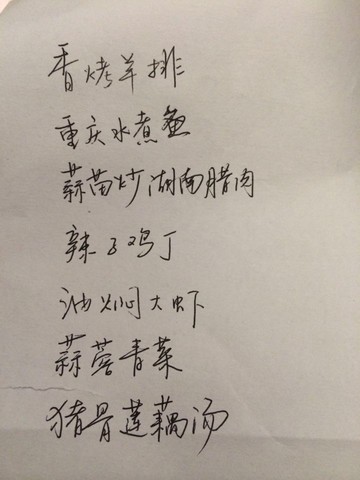 香烤羊排
重庆水煮鱼
蒜苗炒湖南腊肉
辣子鸡丁
油焖大虾
蒜蓉青菜
猪骨莲藕汤